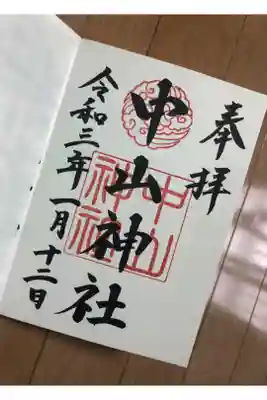 奉拝
中山神社
中山
神社
令和三年一月十二日